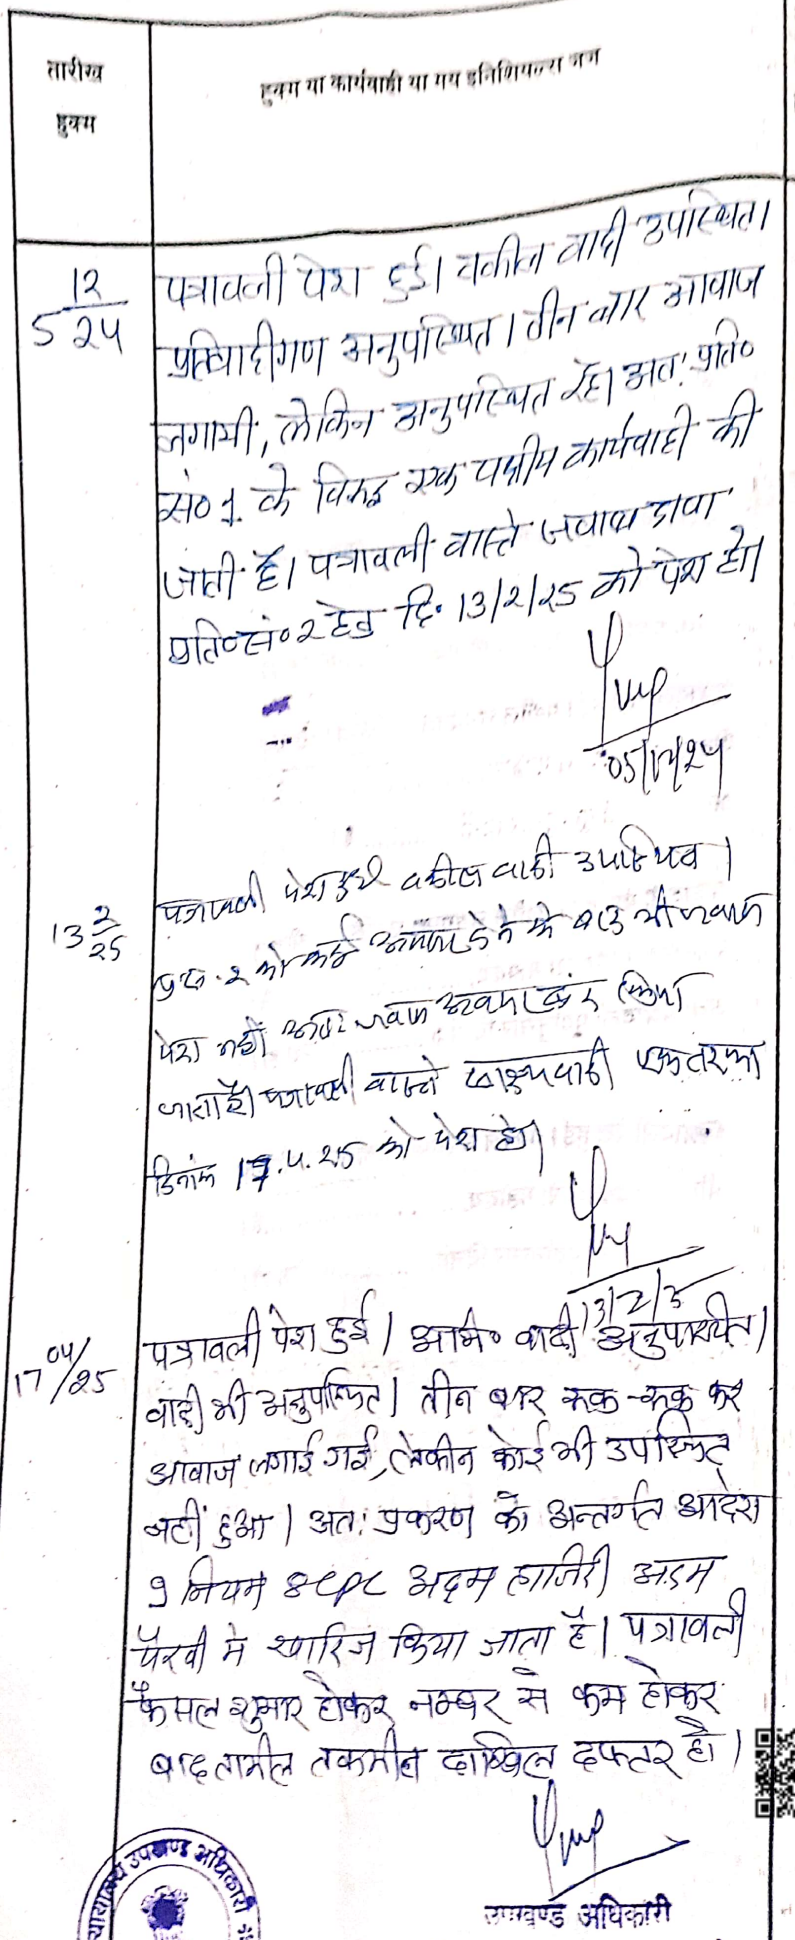 तारीख
हुक्म
हुक्म या कार्यवाही या मय इनिशियल्स जज
12
5 24
पत्रावली पेश हुई। वकील वादी उपस्थित।
प्रतिवादीगण अनुपस्थित। तीन बार आवाज
लगायी, लेकिन अनुपस्थित रहे। अतः प्रति०
सं० 1 के विरुद्ध एक पक्षीय कार्यवाही की
जाती है। पत्रावली वास्ते जवाब दावा
प्रति०सं० 2 हेतु दि. 13/2/25 को पेश हो।
05/12/24
13 2/25
पत्रावली पेश हुई वकील वादी उपस्थित।
को कई अवसर देने के बाद भी जवाब
पेश नहीं अतः जवाब अवसर बंद किया
जाता है। पत्रावली वास्ते साक्ष्य वादी एकतरफा
दिनांक 17.4.25 को पेश हो।
13/2/25
17 04/25
पत्रावली पेश हुई। अभि० वादी अनुपस्थित।
वादी भी अनुपस्थित। तीन बार रूक-रूक कर
आवाज लगाई गई, लेकीन कोई भी उपस्थित
नहीं हुआ। अतः प्रकरण को अन्तर्गत आदेश
9 नियम 8 CPC अदम हाजिरी अदम
पैरवी मे खारिज किया जाता है। पत्रावली
फैसल शुमार होकर नम्बर से कम होकर
बाद तामील तकमील दाखिल दफ्तर हो।
उपखण्ड अधिकारी
न्यायालय उपखण्ड अधिकारी